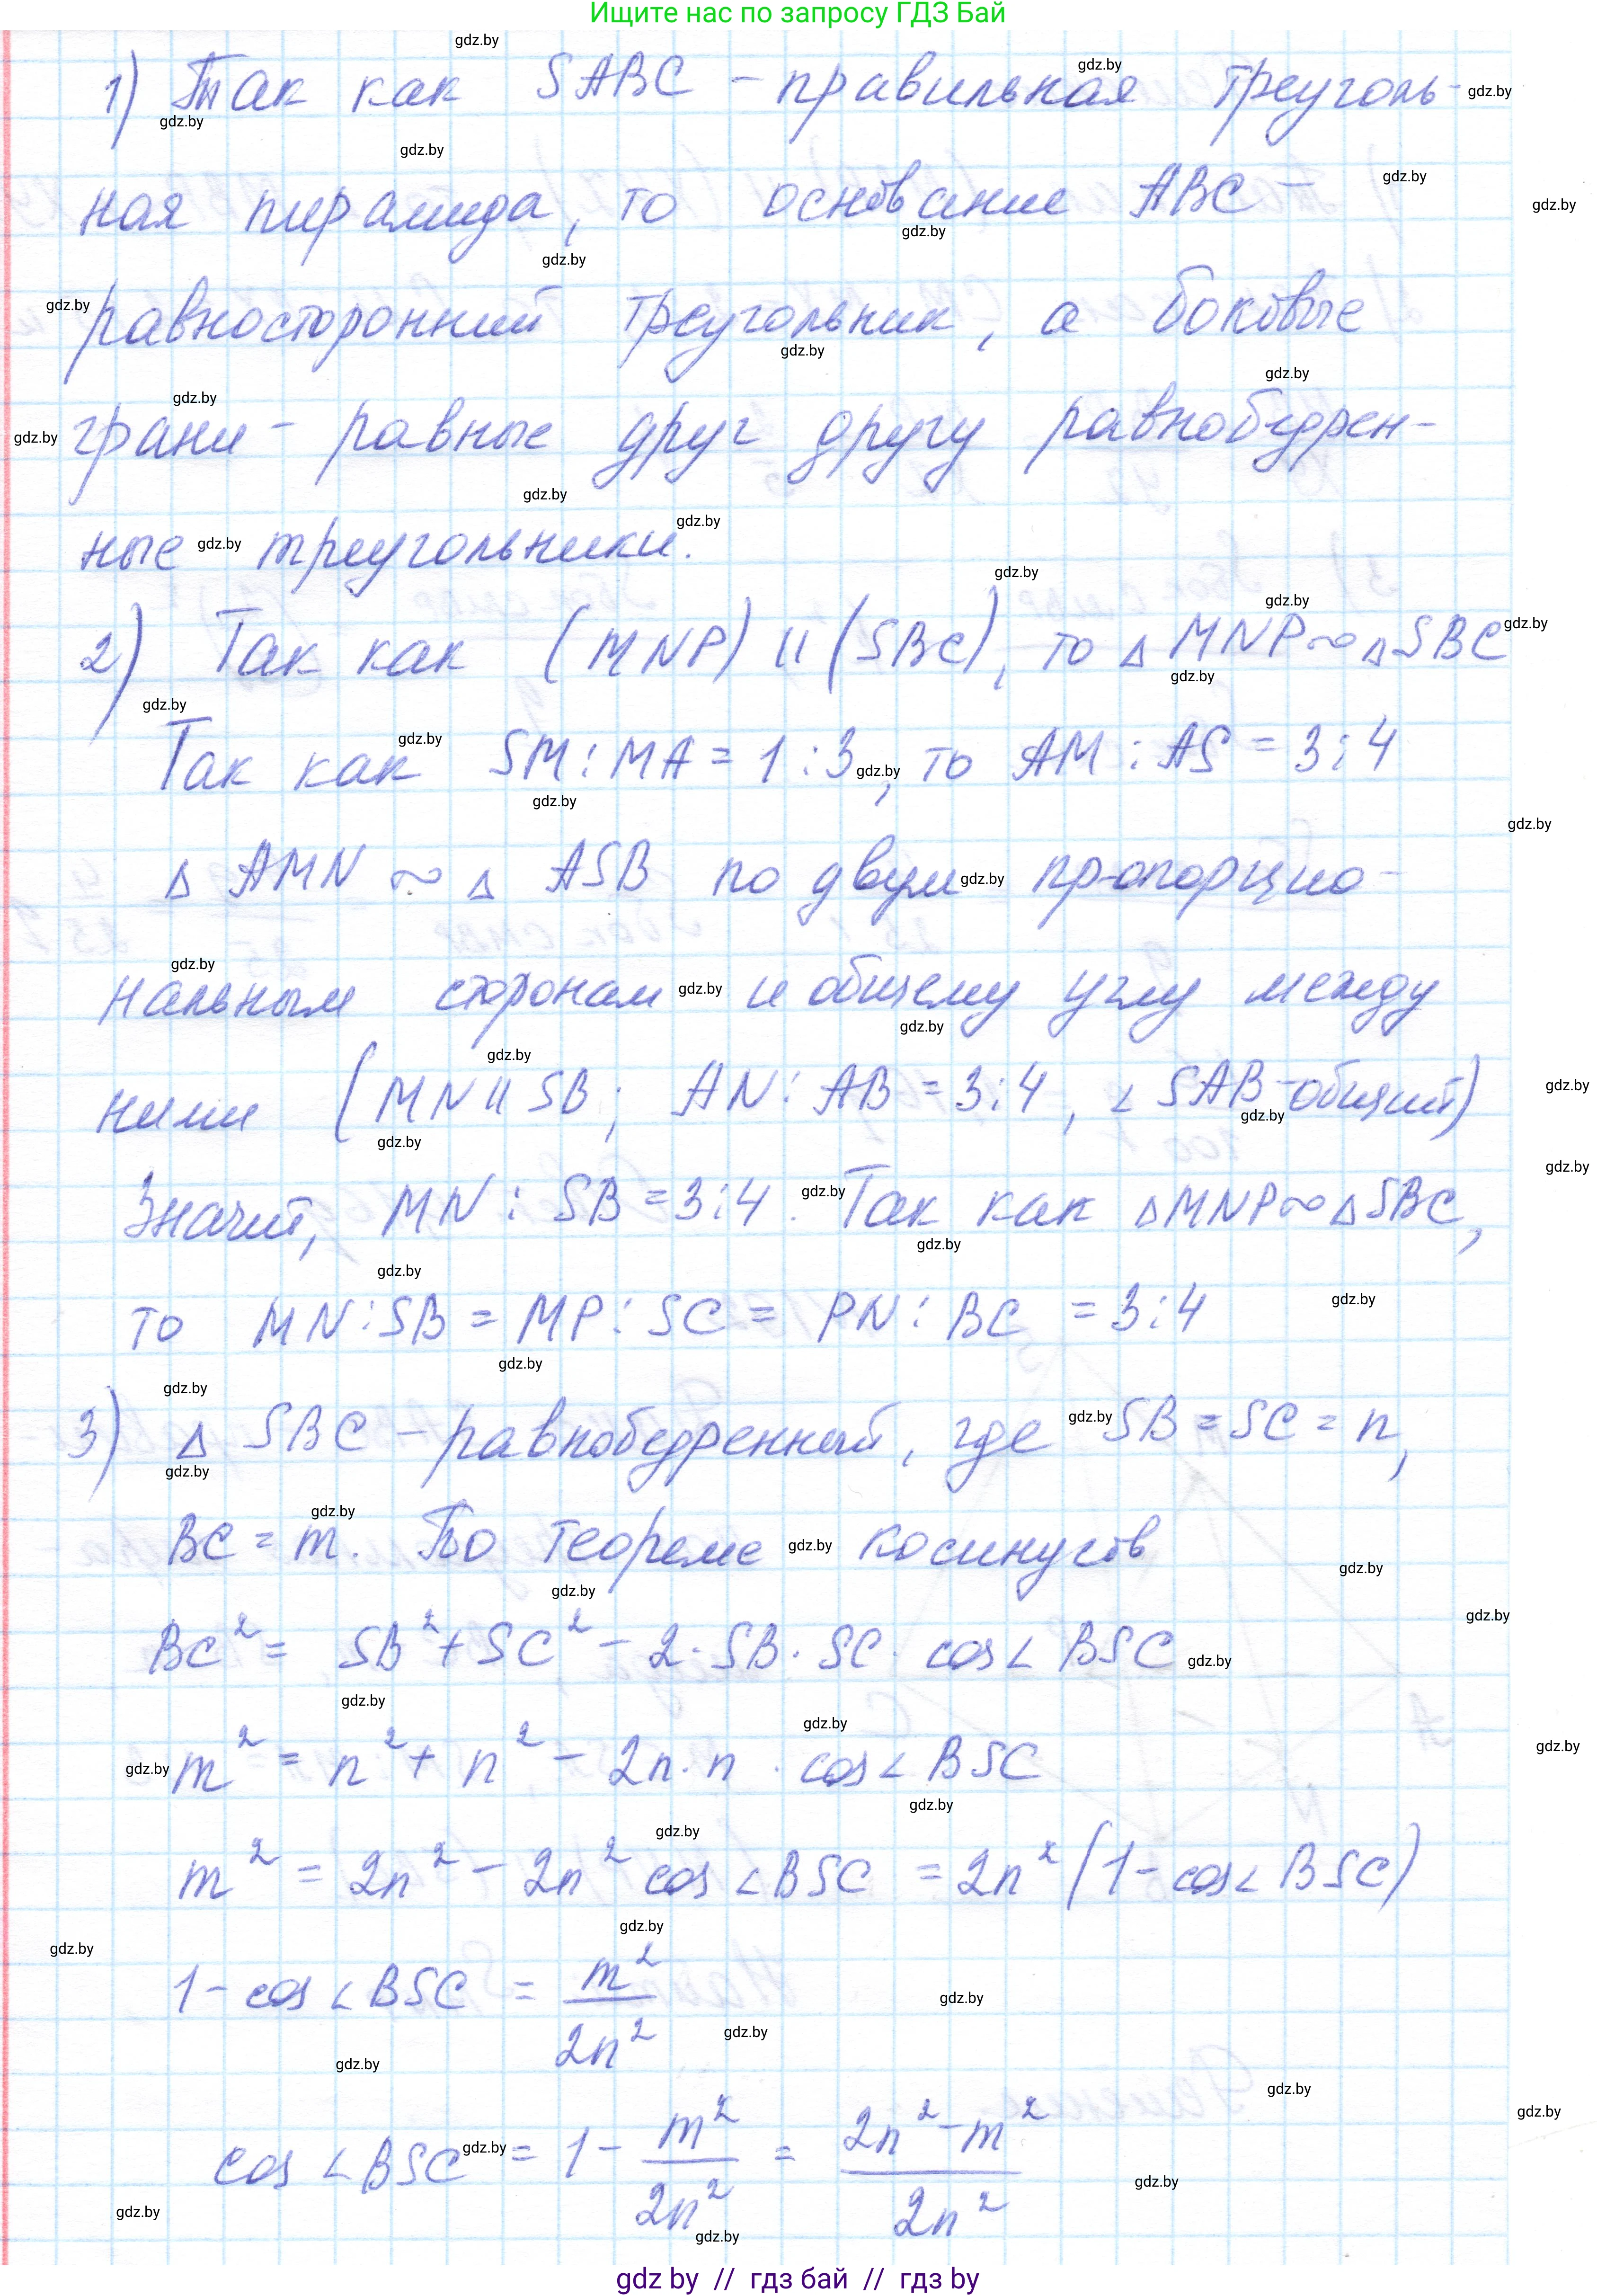 Ищите нас по запросу ГДЗ Бай
1) Так как SABC – правильная треуголь-
ная пирамида, то основание ABC –
равносторонний треугольник, а боковые
грани – равные друг другу равнобедрен-
ные треугольники.
2) Так как (MNP) || (SBC), то △ MNP ∾ △ SBC
Так как SM : MA = 1 : 3, то AM : AS = 3 : 4
△ AMN ∾ △ ASB по двум пропорцио-
нальным сторонам и общему углу между
ними (MN || SB; AN : AB = 3 : 4, ∠ SAB – общий)
Значит, MN : SB = 3 : 4. Так как △ MNP ∾ △ SBC,
то MN : SB = MP : SC = PN : BC = 3 : 4
3) △ SBC – равнобедренный, где SB = SC = n,
BC = m. По теореме косинусов
BC² = SB² + SC² – 2 · SB · SC · cos∠ BSC
m² = n² + n² – 2n · n · cos∠ BSC
m² = 2n² – 2n² cos ∠BSC = 2n² (1 – cos∠ BSC)
1 – cos ∠BSC = m²/2n²
cos ∠BSC = 1 – m²/2n² = (2n² – m²)/2n²
gdz by // гдз бай // гдз by